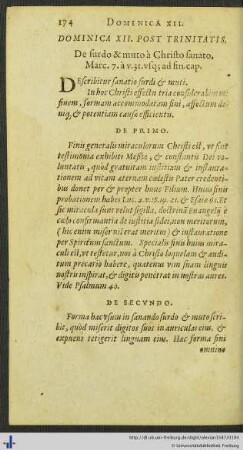 174 DOMENICA XII.
DOMINICA XII. POST TRINITATIS.
De surdo & muto à Christo sanato,
Marc. 7. à v. 31. vsq; ad fin. cap.
DEscribitur sanatio surdi & muti.
In hoc Christi effectu tria consideralimus:
finem, formam accommodatam fini, affectum de-
niq; & potentiam causæ efficientis.
DE PRIMO.
Finis generalis miraculorum Christi est, vt sint
testimonia exhibiti Messiæ, & constantis Dei vo-
luntatis, quòd gratuitam iustitiam & instaura-
tionem ad vitam æternam cœlestis Pater credenti-
bus donet per & propter hunc Filium. Huius finis
probationem habes Luc. 4. v. 18. 19. 21. & Esaiæ 61. Et
sic miracula sunt velut sigilla, doctrinā Euangelij &
cultus confirmantia de iustitia fidei, non meritorum,
(hic enim miser nil erat meritus) & instauratione
per Spiritum sanctum. Specialis finis huius mira-
culi est, vt testetur, nos à Christo loquelam & audi-
tum precario habere, quatenus vim suam linguis
nostris inspirat, & digitis penetrat in nostras aures.
Vide Psalmum 40.
DE SECVNDO.
Forma hac vsus in sanando surdo & muto scri-
bit, quòd miserit digitos suos in auriculas eius, &
expuens tetigerit linguam eius. Hæc forma fini
omnino
http://dl.ub.uni-freiburg.de/diglit/
© Universitätsbibliothek Freiburg